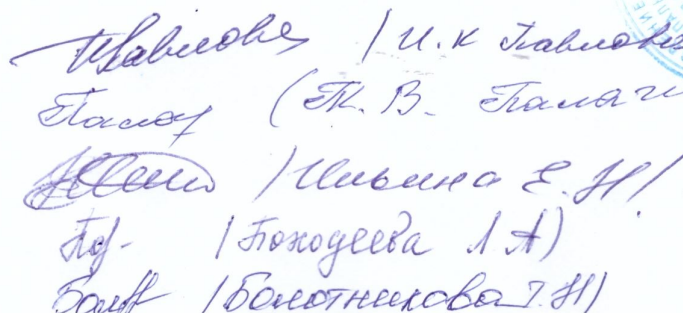 Павлова /И.К Павлова
Палат (Т.В. Палаги
/Ильина Е.Н/
Пох- /Походеева Л А)
Болот /Болотникова Т.Н)